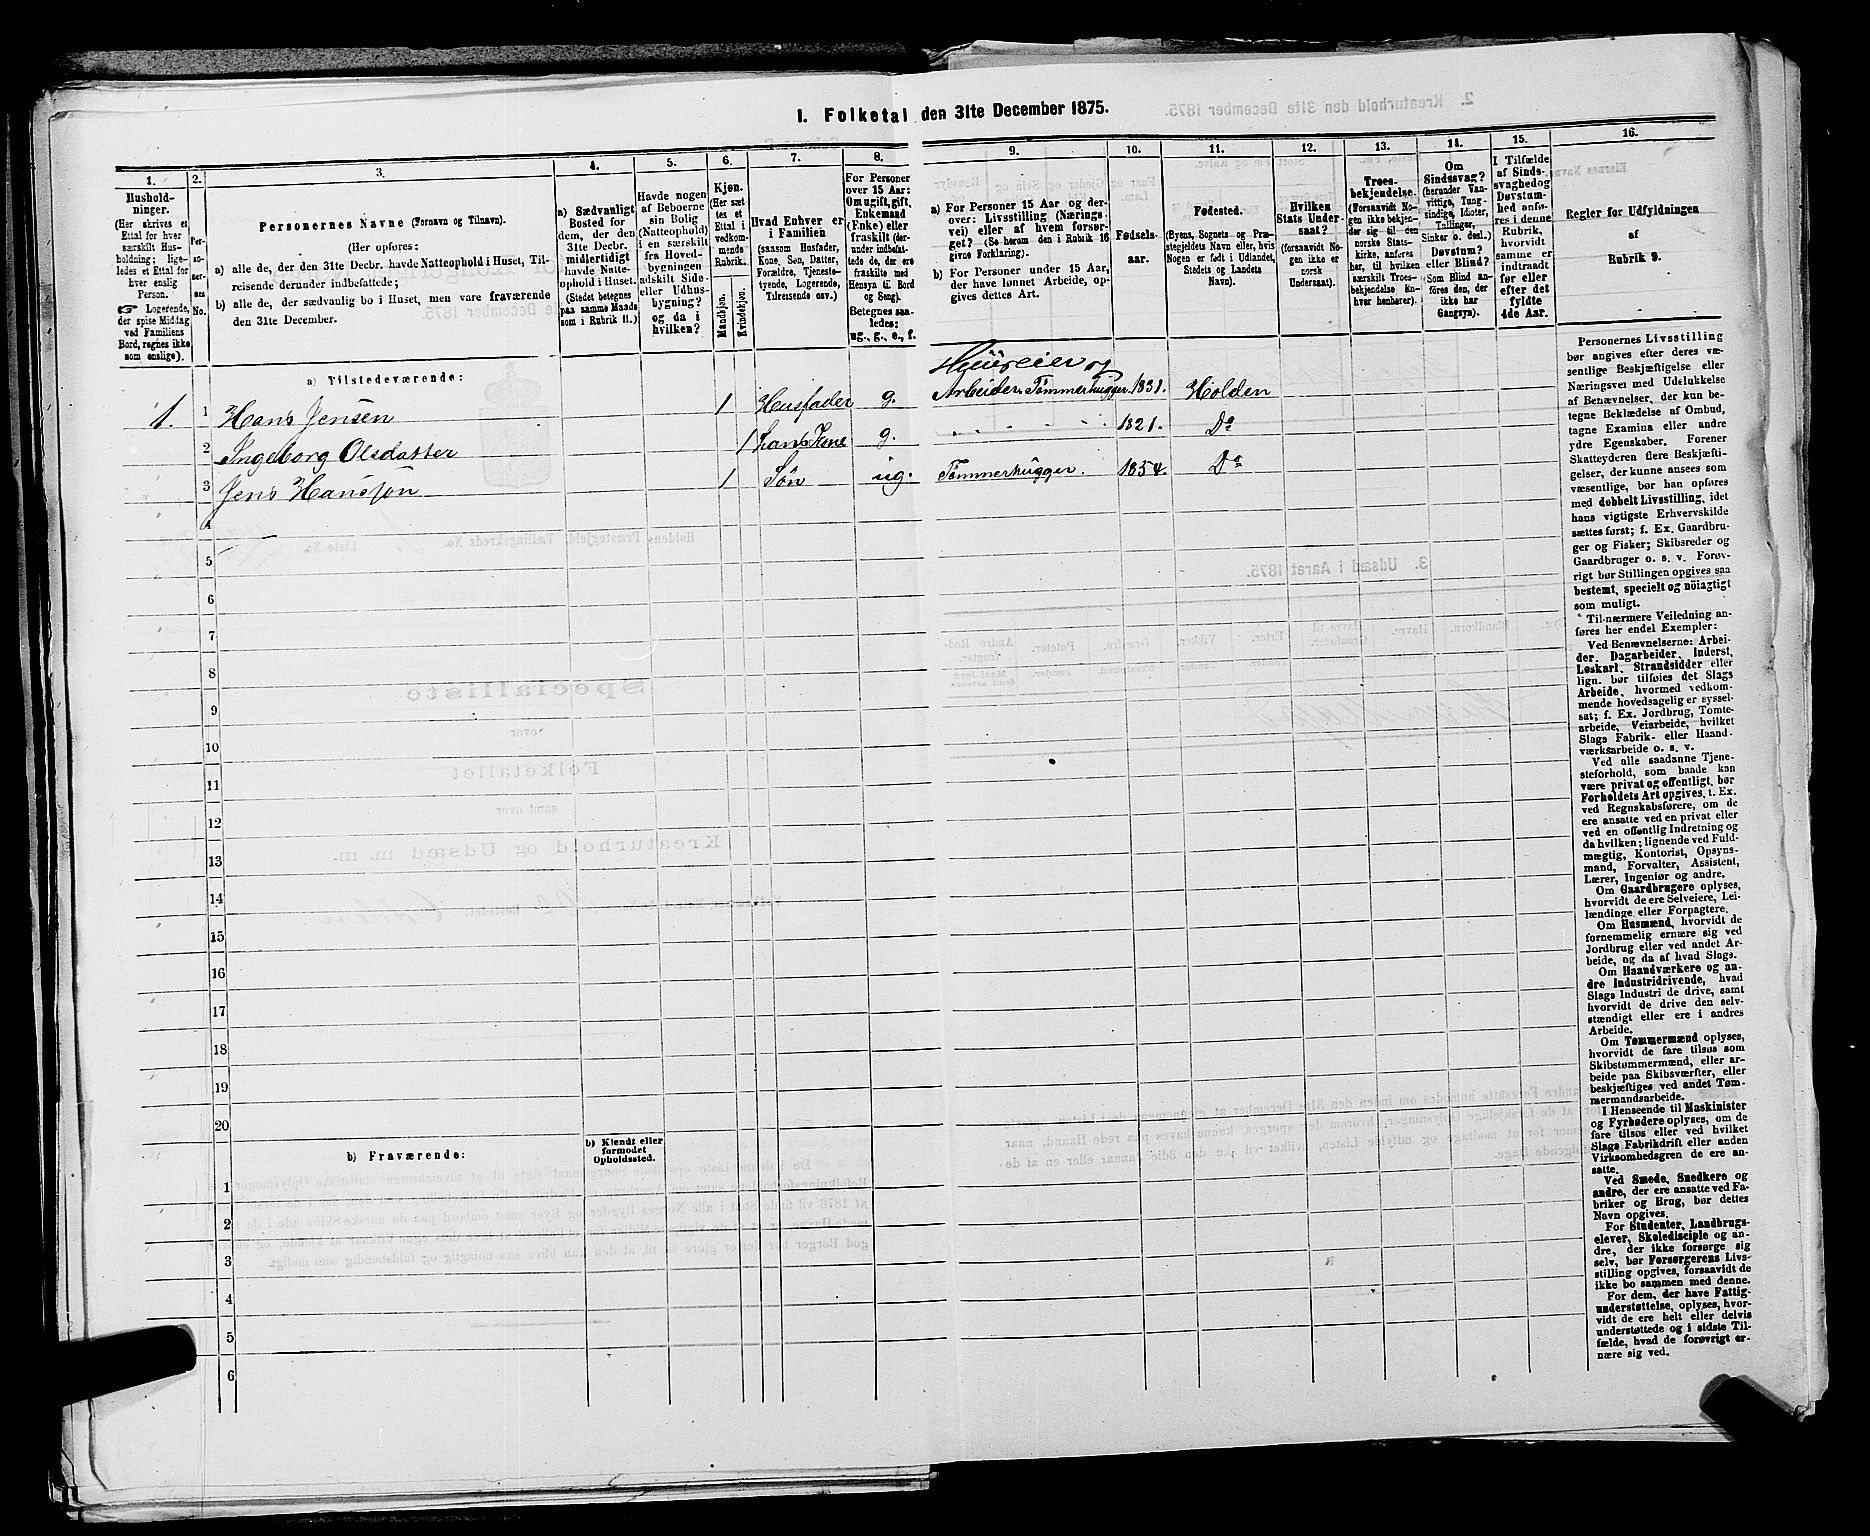 1. Folketal den 31te December 1875.
1.
Hushold-
ninger.
(Her skrives et
Ettal for hver
særskilt Hus-
holdning; lige-
ledes et Ettal for
hver enslig
Person.
☞ Logerende,
der spise Middag
ved Familiens
Bord, regnes ikke
som enslige).
2.
Per-
so-
ner-
nes
No.
3.
Personernes Navne (Fornavn og Tilnavn).
(Her opføres:
a) alle de, der den 31te Decbr. havde Natteophold i Huset, Til-
reisende derunder indbefattede;
b) alle de, der sædvanlig bo i Huset, men vare fraværende
den 31te December.
4.
a) Sædvanligt
Bosted for
dem, der den
31te Decbr.
midlertidigt
havde Natte-
ophold i Huset.
(Stedet betegnes
paa samme Maade
som i Rubrik 11.)
5.
Havde nogen
af Beboerne
sin Bolig
(Natteophold)
i en særskilt
fra Hoved-
bygningen
adskilt Side-
eller Udhus-
bygning?
og da i
hvilken?
6.
Kjøn.
(Her sæt
tes et
Ettal i
vedkom-
mende
Rubrik.)
Mandkjøn.
Kvindekjøn.
7.
Hvad Enhver er
i Familien
(saasom Husfader,
Kone, Søn, Datter,
Forældre, Tjeneste-
tyende, Logerende,
Tilreisende osv.)
8.
For Personer
over 15 Aar:
Om ugift, gift,
Enkemand
(Enke) eller
fraskilt (der-
under indbefat-
tede de, der ere
fraskilte med
Hensyn til Bord
og Seng).
Betegnes saa-
ledes:
ug., g., e., f.
9.
a) For Personer 15 Aar og der-
over: Livsstilling (Nærings-
vei) eller af hvem forsør-
get? (Se herom den i Rubrik 16
givne Forklaring).
b) For Personer under 15 Aar,
der have lønnet Arbeide, op-
gives dettes Art.
10.
Fødsels-
aar.
11.
Fødested.
(Byens, Sognets og Præ-
stegjeldets Navn eller, hvis
Nogen er født i Udlandet,
Stedets og Landets
Navn).
12.
Hvilken
Stats Under-
saat?
(forsaavidt No-
gen ikke er
norsk
Undersaat).
13.
Troes-
bekjendelse.
(Forsaavidt No-
gen ikke bekjen-
der sig til den
norske Stats-
kirke, anføres
her, til hvilken
særskilt Troes-
bekjendelse En-
hver henhører).
14.
Om
Sindssvag?
(herunder Van-
vittige, Tung-
sindige, Idioter,
Tullinger,
Sinker o. desl.)
Døvstum?
eller Blind?
(Som Blind an-
føres den, der
ikke har
Gangsyn).
15.
I Tilfælde
af Sinds-
svaghed og
Døvstum-
hed anfø-
res i denne
Rubrik,
hvorvidt
samme er
indtraadt
før eller
efter det
fyldte
4de Aar.
16.
Regler for Udfyldningen
af
Rubrik 9.
a) Tilstedeværende:
Hüüseier og
1. 1 Hans Jensen 1 Husfader g. Arbeider. Tømmerhugger. 1831. Holden
2 Ingeborg Olsdatter 1 hans Kone g. 1821. Do
3 Jens Hansson 1 Søn ug. Tømmerhugger. 1854. Do
4
5
6
7
8
9
10
11
12
13
14
15
16
17
18
19
20
b) Fraværende:
b) Kjendt eller
formodet
Opholdssted.
1
2
3
4
5
6
Personernes Livsstilling
bør angives efter deres væ-
sentlige Beskjæftigelse eller
Næringsvei med Udelukkelse
af Benævnelser, der kun be-
tegne Beklædelse af Ombud,
tagne Examina eller andre
ydre Egenskaber. Forener
Skatteyderen flere Beskjæfti-
gelser, der kunne ansees som
væsentlige, bør han opføres
med dobbelt Livsstilling, idet
hans vigtigste Erhvervskilde
sættes først; f. Ex. Gaardbru-
ger og Fisker; Skibsreder og
Gaardbruger o. s. v. Forøv-
rigt bør Stillingen opgives saa
bestemt, specielt og nöiagtigt
som muligt.
Til nærmere Veiledning an-
føres her endel Exempler:
Ved Benævnelserne: Arbei-
der, Dagarbeider, Inderst,
Løskarl, Strandsidder eller
lign. bør tilføies det Slags
Arbeide, hvormed vedkom-
mende hovedsagelig er syssel-
sat; f. Ex. Jordbrug, Tomte-
arbeide, Veiarbeide, hvilket
Slags Fabrik- eller Haand-
værksarbeide o. s. v.
Ved alle saadanne Tjene-
steforhold, som baade kan
være privat og offentligt, bør
Forholdets Art opgives, t. Ex.
ved Regnskabsførere, om de
ere ansatte ved en privat eller
ved en offentlig Indretning og
da hvilken; lignende ved Fuld-
mægtig, Kontorist, Opsyns-
mand, Forvalter, Assistent,
Lærer, Ingeniør og andre.
Om Gaardbrugere oplyses,
hvorvidt de ere Selveiere, Lei-
lændinge eller Forpagtere.
Om Husmænd, hvorvidt de
fornemmelig ernære sig ved
Jordbrug eller ved andet Ar-
beide, og da af hvad Slags.
Om Haandværkere og an-
dre Industridrivende, hvad
Slags Industri de drive, samt
hvorvidt de drive den selv-
stændigt eller ere i andres
Arbeide.
Om Tømmermænd oplyses,
hvorvidt de fare tilsøs som
Skibstømmermænd, eller ar-
beide paa Skibsværfter, eller
beskjæftiges ved andet Tøm-
mermandsarbeide.
I Henseende til Maskinister
og Fyrbødere oplyses, om de
fare tilsøs eller ved hvilket
Slags Fabrikdrift eller anden
Virksomhedsgren de ere an-
satte.
Ved Smede, Snedkere og
andre, der ere ansatte ved Fa-
briker og Brug, bør dettes
Navn opgives.
For Studenter, Landbrugs-
elever, Skoledisciple og an-
dre, der ikke forsørge sig
selv, bør Forsørgerens Livs-
stilling opgives, forsaavidt de
ikke bo sammen med denne.
For dem, der have Fattig-
understøttelse, oplyses, hvor-
vidt de ere helt eller delvis
understøttede og i sidste Til-
fælde, hvad de forøvrigt er-
nære sig ved.